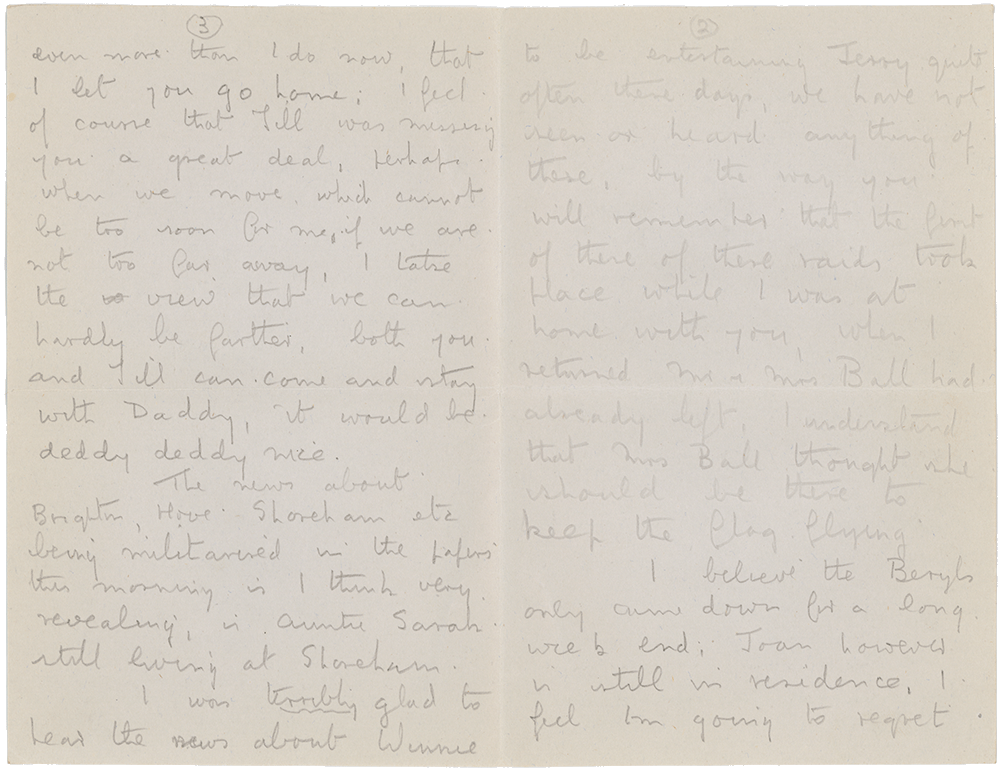 2
to be entertaining Jerry quite
often these days, we have not
seen or heard anything of
these, by the way you
will remember that the first
of these of these raids took
place while I was at
home with you, when I
returned Mr & Mrs Ball had
already left, I understand
that Mrs Ball thought she
should be there to
keep the flag flying
I believe the Beryls
only came down for a long
week end; Joan however
is still in residence, I
feel Im going to regret
3
even more than I do now, that
I let you go home; I feel
of course that Jill was missing
you a great deal, perhaps
when we move, which cannot
be too soon for me, if we are
not too far away, I
the view that we can
hardly be farther, both you
and Jill can come and stay
with Daddy, it would be
deddy deddy nice.
The news about
Brighton, Hove Shoreham etc
being in the papers
this morning is I think very
revealing, is Auntie Sarah
still living at Shoreham.
I was terribly glad to
hear the news about Winnie